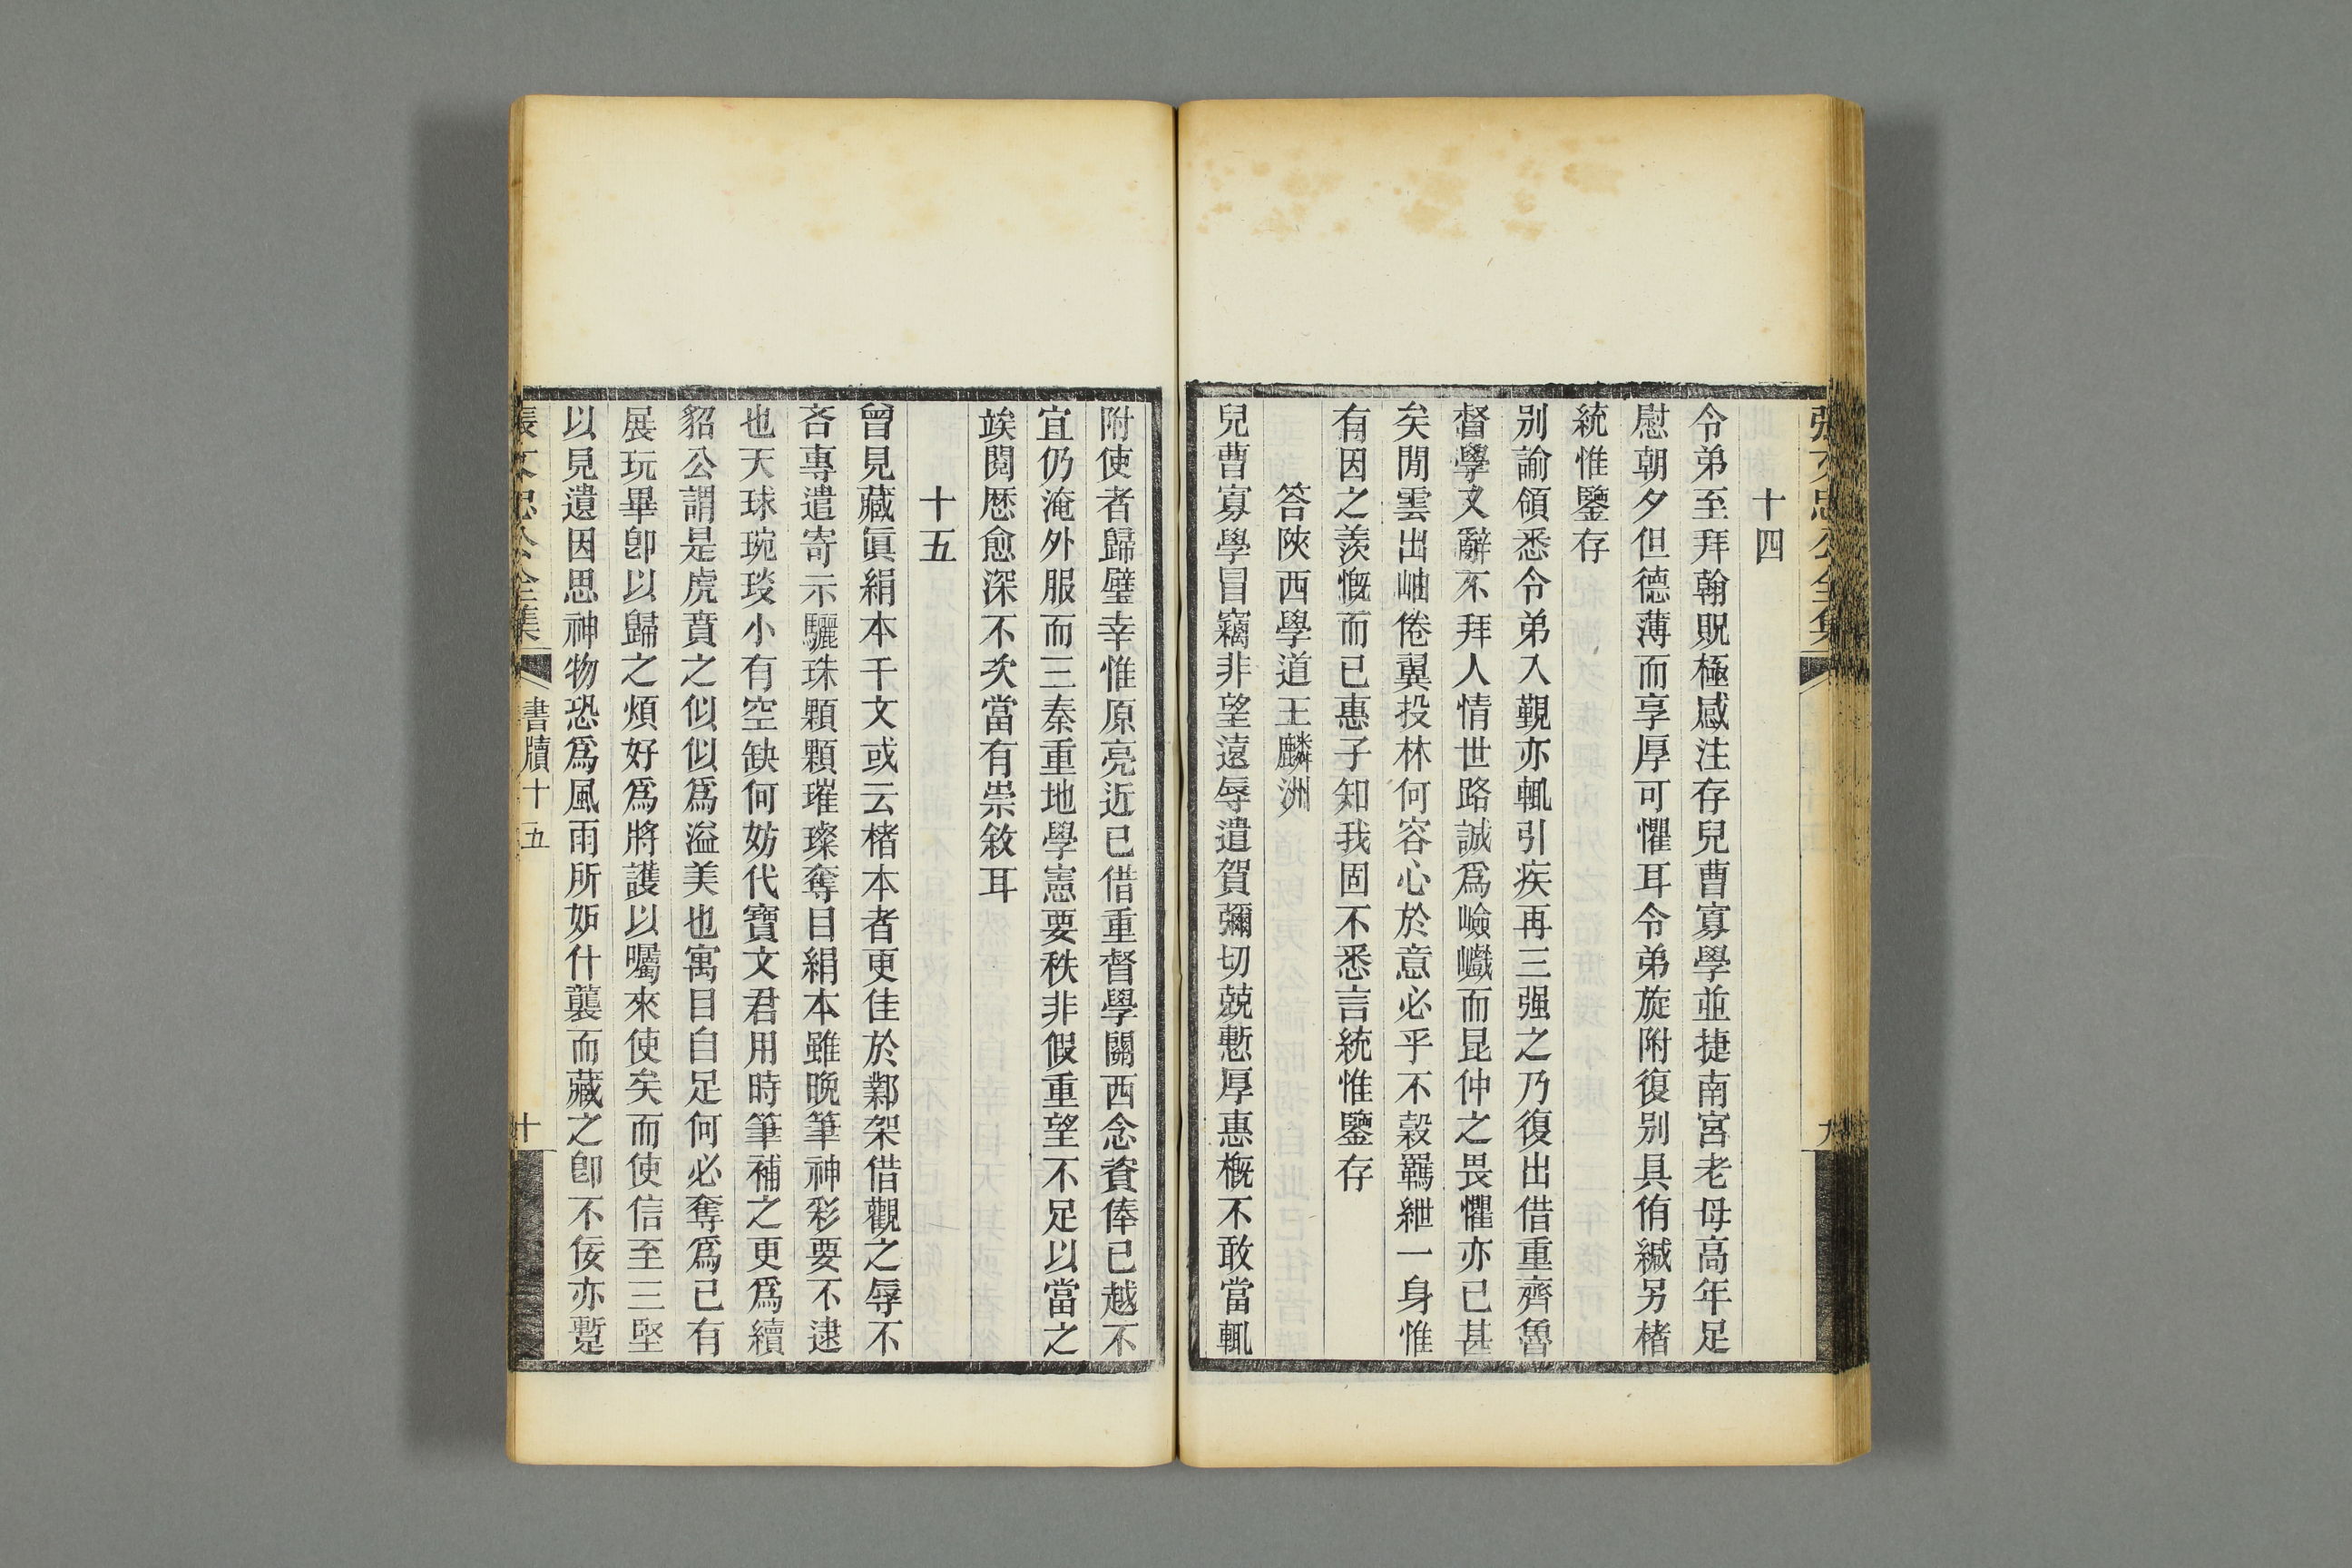 十四
令弟至拜翰貺極感注存兒曹寡學並捷南宮老母高年足
慰朝夕但德薄而享厚可懼耳令弟旋附復别具侑緘另楮
統惟鑒存
别諭領悉令弟入觀亦輒引疾再三强之乃復出借重齊魯
督學又辭不拜人情世路誠爲嶮巇而昆仲之畏懼亦已甚
矣閒雲出岫倦翼投林何容心於意必乎不榖羈紲一身惟
有因之羨慨而已惠子知我固不悉言統惟鑒存
答陜西學道王麟洲
兒曹寡學冒竊非望遠辱遣賀彌切兢慙厚惠槪不敢當輒
附使者歸璧幸惟原亮近已借重督學關西念資俸已越不
宜仍淹外服而三秦重地學憲要秩非假重望不足以當之
竢閱歷愈深不次當有崇敘耳
十五
曾見藏眞絹本千文或云楮本者更佳於鄴架借觀之辱不
吝專遣寄示驪珠顆顆璀璨奪目絹本雖晚筆神彩要不逮
也天球琬琰小有空缺何妨代寶文君用時筆補之更爲續
貂公謂是虎賁之似似爲溢美也寓目自足何必奪爲己有
展玩畢卽以歸之煩好爲將護以囑來使矣而使信至三堅
以見遺因思神物恐爲風雨所妒什襲而藏之卽不佞亦蹔
張文忠公全集
書牘十五
十